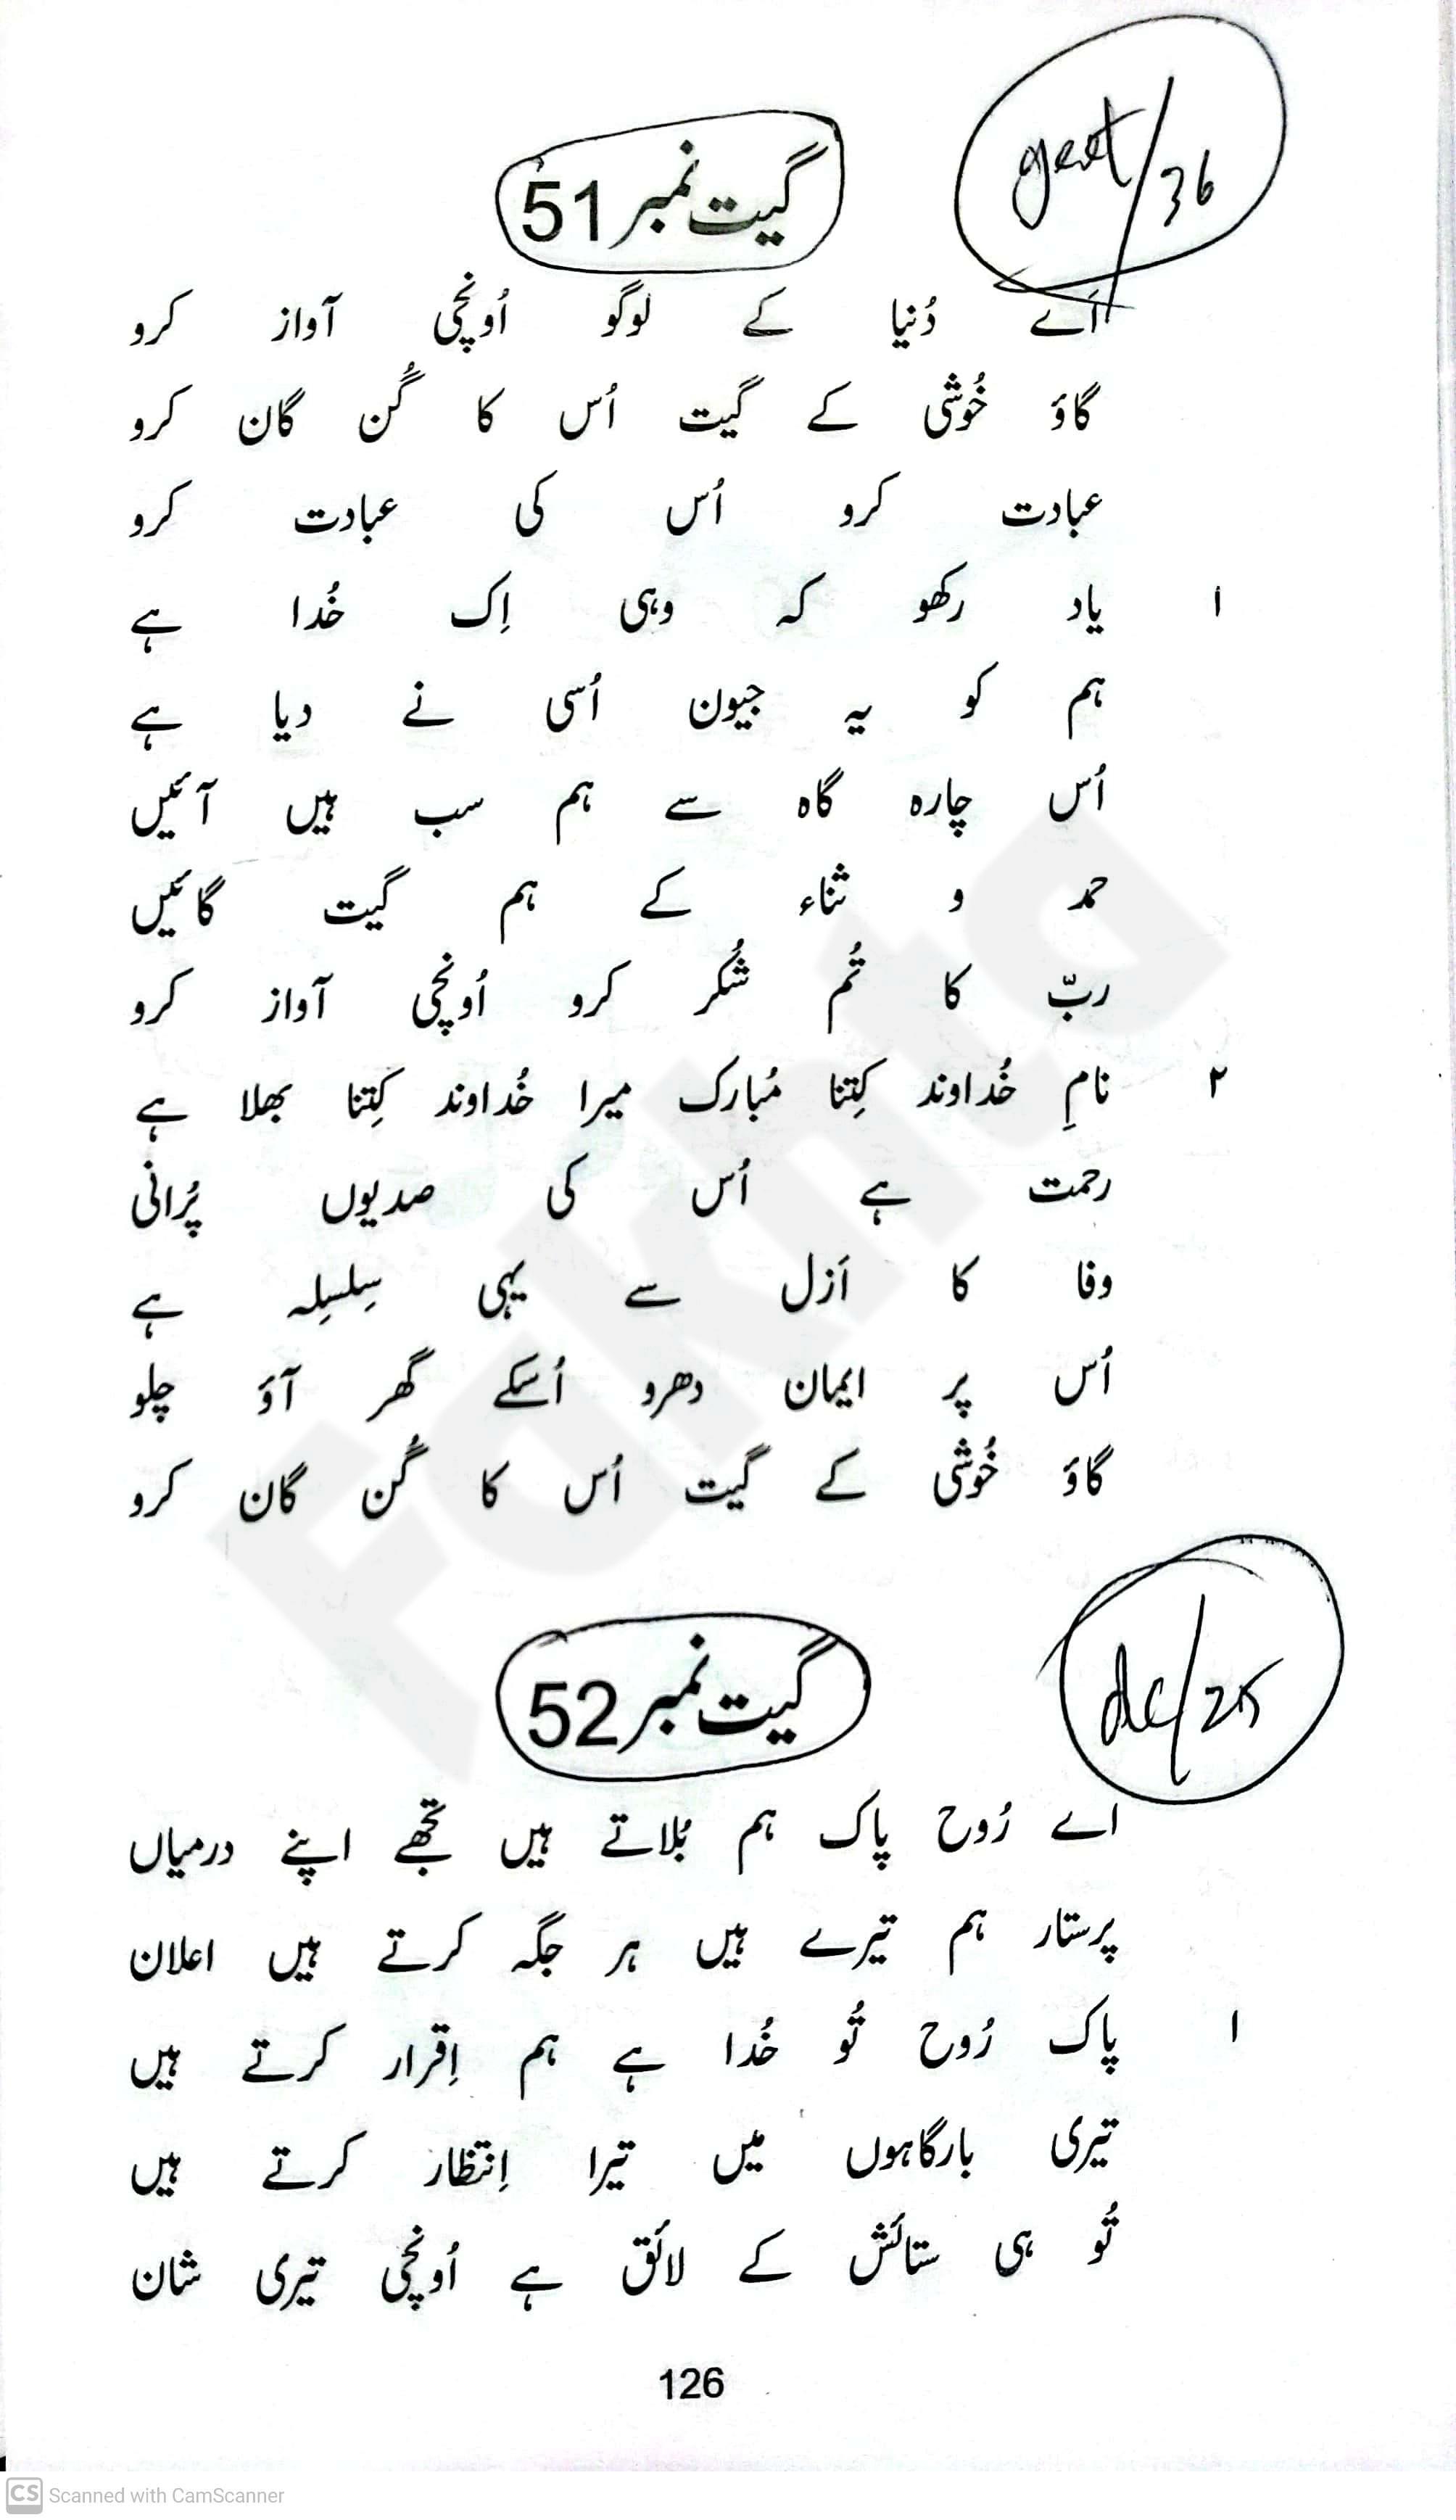 geet/36
گیت نمبر 51
اَے دُنیا کے لوگو اُونچی آواز کرو
گاؤ خُوشی کے گیت اُس کا گُن گان کرو
عبادت کرو اُس کی عبادت کرو
۱ یاد رکھو کہ وہی اِک خُدا ہے
ہم کو یہ جیون اُسی نے دیا ہے
اُس چارہ گاہ سے ہم سب ہیں آئیں
حمد و ثناء کے ہم گیت گائیں
ربّ کا تُم شُکر کرو اُونچی آواز کرو
۲ نامِ خُداوند کِتنا مُبارک میرا خُداوند کِتنا بھلا ہے
رحمت ہے اُس کی صدیوں پُرانی
وفا کا اَزل سے یہی سِلسِلہ ہے
اُس پر ایمان دھرو اُسکے گھر آؤ چلو
گاؤ خُوشی کے گیت اُس کا گُن گان کرو
de/25
گیت نمبر 52
اے رُوح پاک ہم بُلاتے ہیں تُجھے اپنے درمیاں
پرستار ہم تیرے ہیں ہر جگہ کرتے ہیں اعلان
۱ پاک رُوح تُو خُدا ہے ہم اِقرار کرتے ہیں
تیری بارگاہوں میں تیرا اِنتظار کرتے ہیں
تُو ہی ستائش کے لائق ہے اُونچی تیری شان
126
Fakhta
CS Scanned with CamScanner